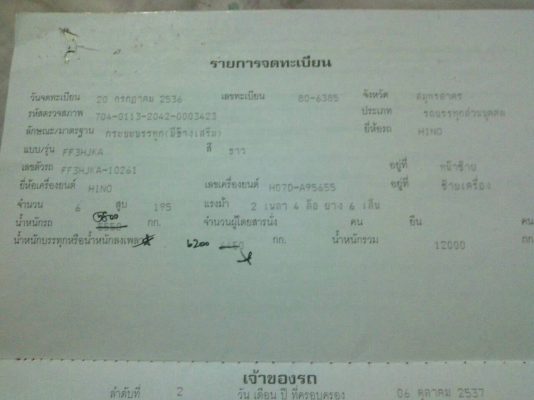 รายการจดทะเบียน
วันจดทะเบียน 20 กรกฎาคม 2536 เลขทะเบียน 80-6385 จังหวัด สมุทรสาคร
รหัสตรวจสภาพ 704-0113-2042-0003423 ประเภท รถบรรทุกส่วนบุคคล
ลักษณะ/มาตรฐาน กระบะบรรทุก(มีข้างเสริม) ยี่ห้อรถ HINO
แบบ/รุ่น FF3HJKA สี ขาว
เลขตัวรถ FF3HJKA-10261 อยู่ที่ หน้าซ้าย
ยี่ห้อเครื่องยนต์ HINO เลขเครื่องยนต์ H07D-A95655 อยู่ที่ ซ้ายเครื่อง
จำนวน 6 สูบ 195 แรงม้า 2 เพลา 4 ล้อ ยาง 6 เส้น
น้ำหนักรถ กก. จำนวนผู้โดยสารนั่ง คน ยืน คน
น้ำหนักบรรทุกหรือน้ำหนักลงเพลา 6200 กก. น้ำหนักรวม 12000 กก
เจ้าของรถ
ลำดับที่ 2 วัน เดือน ปี ที่ครอบครอง 06 ตุลาคม 2537